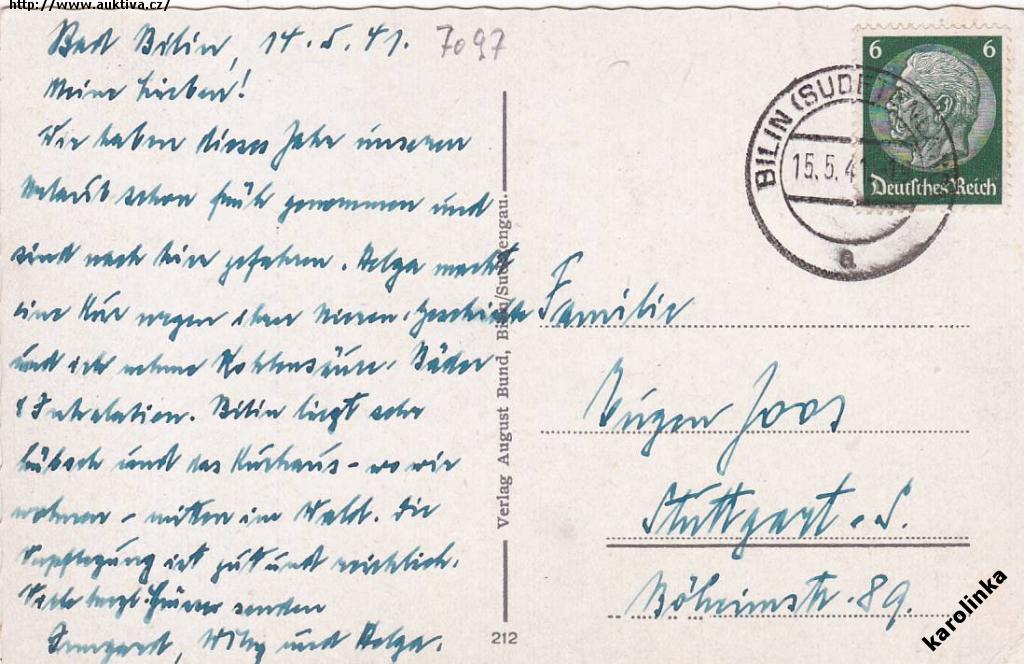 http://www.auktiva.cz/
Bad Bilin, 14.5.41.
7097
Meine Lieben!
Wir haben dieses Jahr unseren
Urlaub schon früh genommen und
sind nach hier gefahren. Helga macht
eine Kur wegen ihrer Nieren-Geschichte
und ich nehme Kohlensäure-Bäder
& Inhalation. Bilin liegt sehr
hübsch und das Kurhaus - wo wir
wohnen - mitten im Wald. Die
Verpflegung ist gut und reichlich.
Viele herzl. Grüsse senden
Irmgard, Willy und Helga.
Verlag August Bund, Bilin/Sudetengau.
212
6 6
Deutsches Reich
BILIN (SUDETENGAU)
15.5.41
a
Familie
Eugen Joos
Stuttgart-S.
Böheimstr. 89.
karolinka